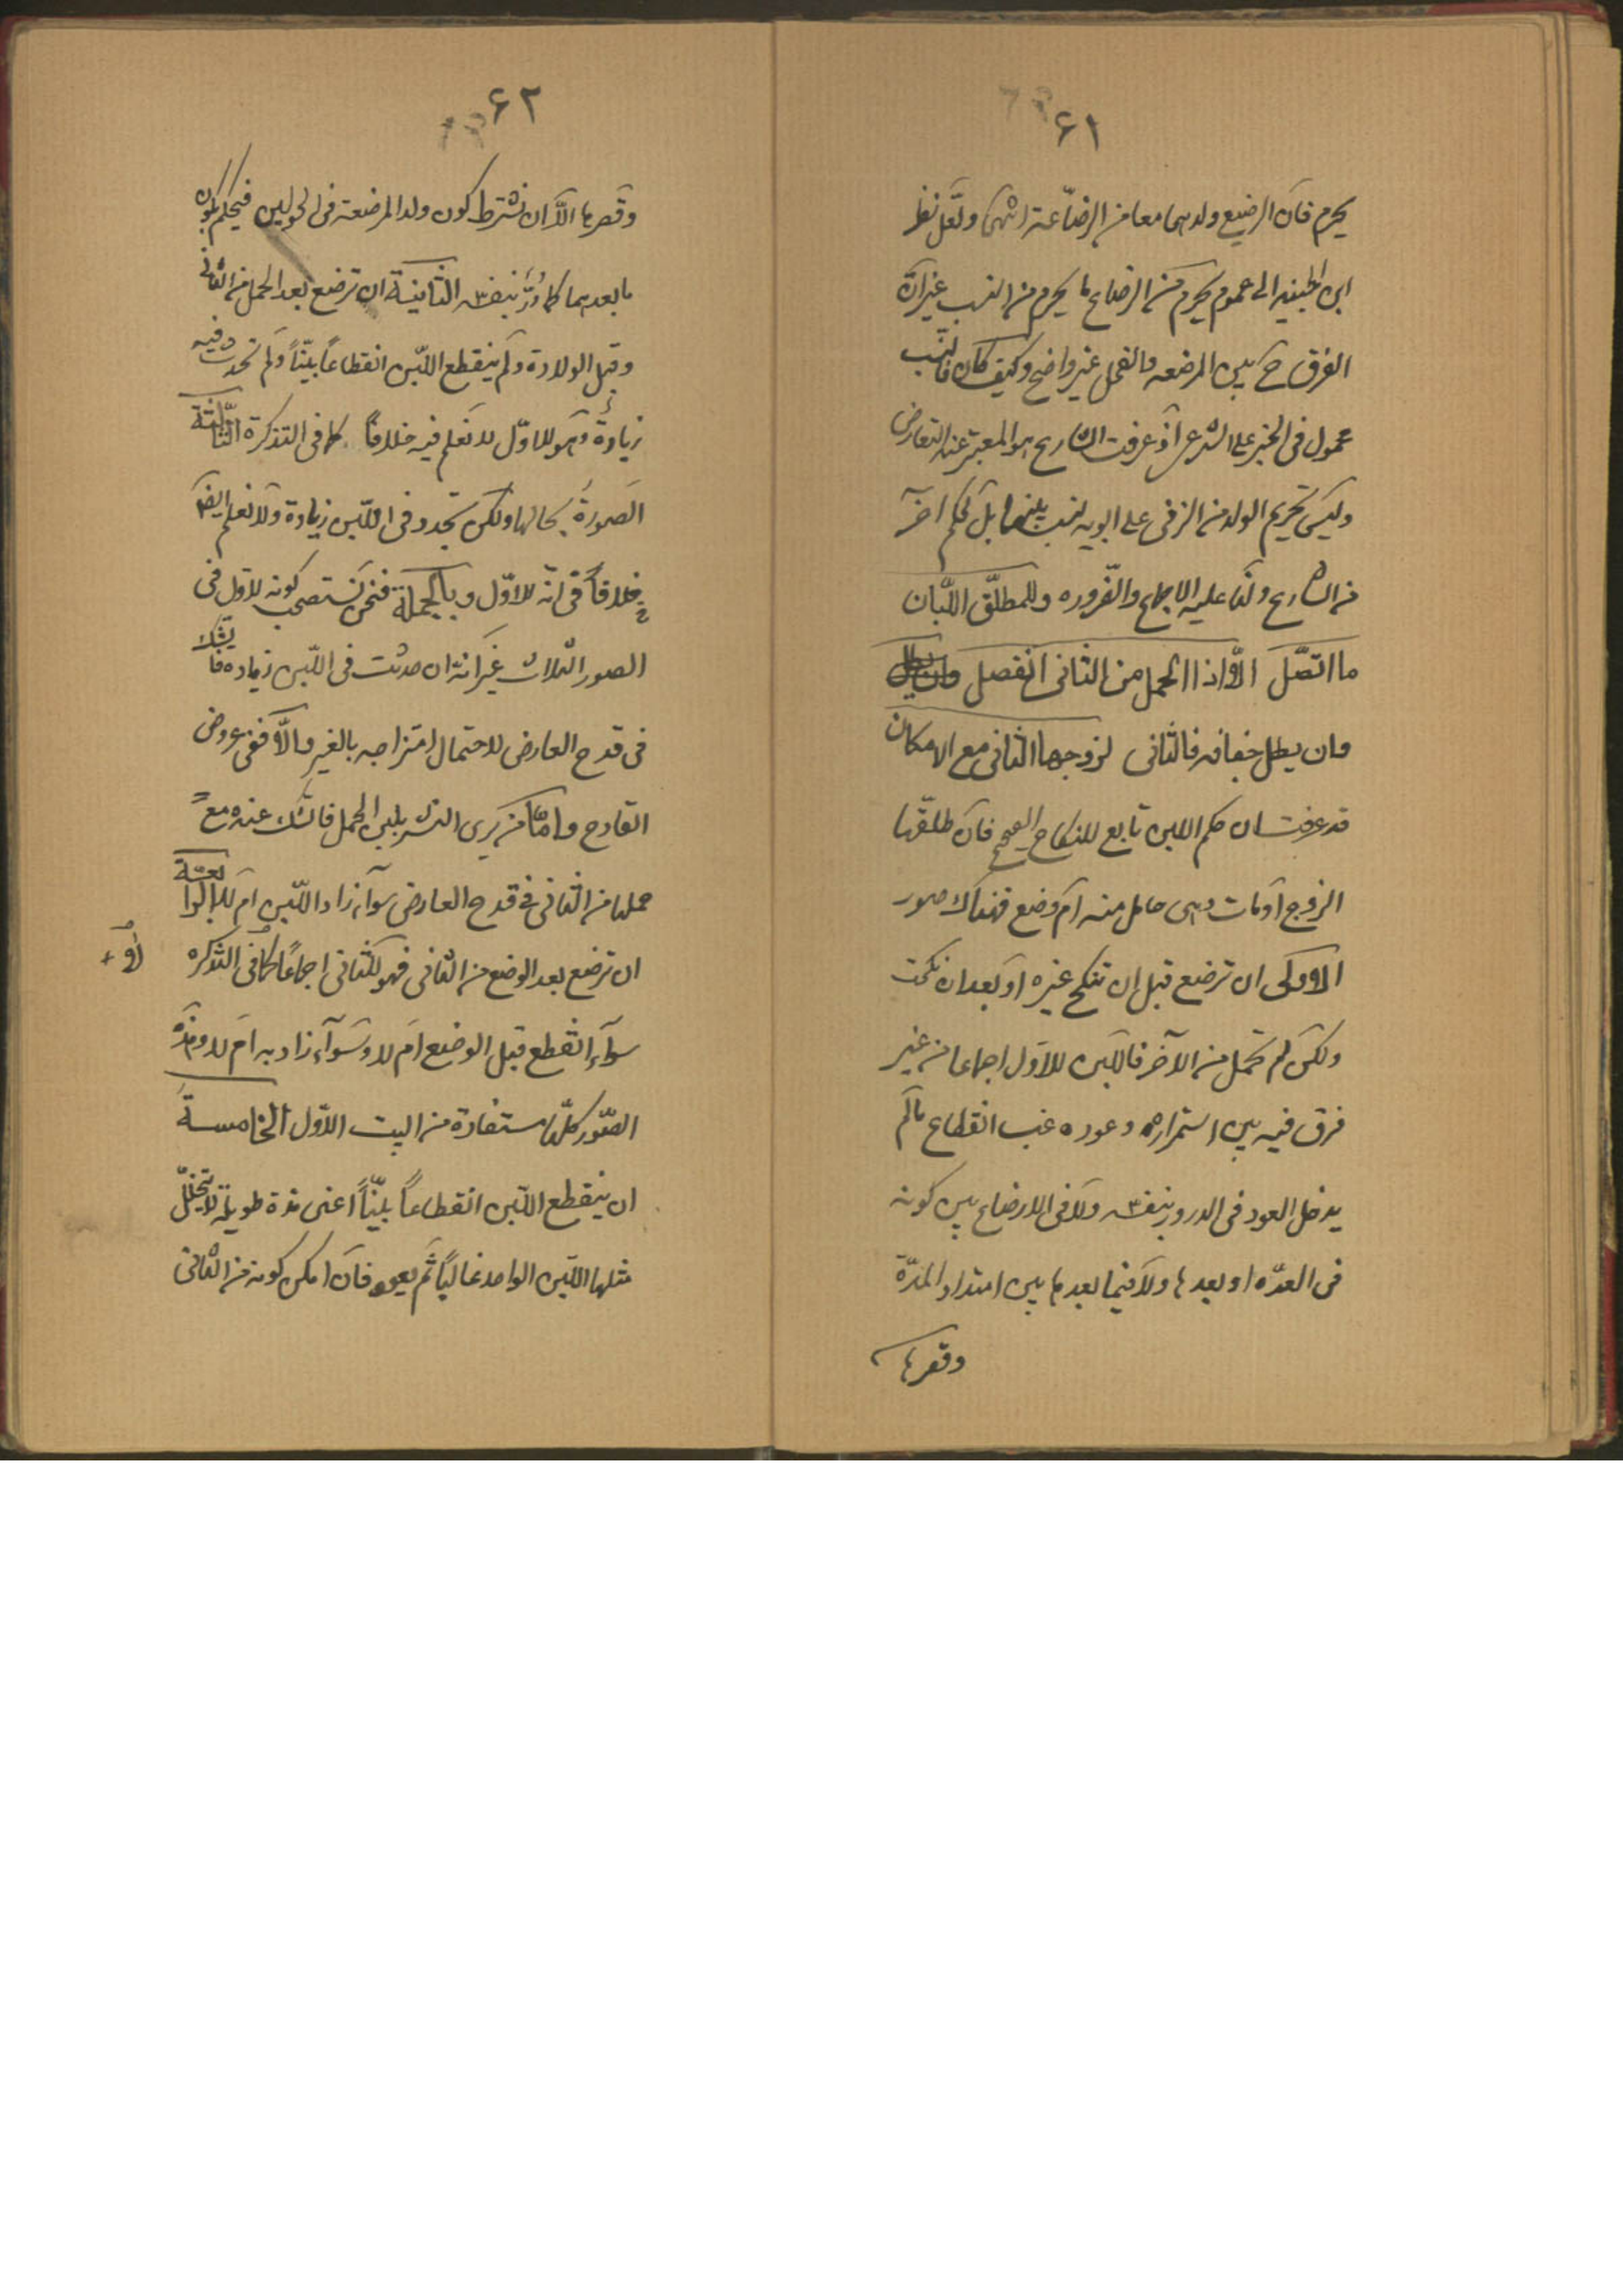 ٦١
يحرم فان الرضيع ولدهما معا من الرضاعة انتهى ولعل نظر
ابن الجنيد الى عموم يحرم من الرضاع ما يحرم من النسب غير ان
الفرق ح بين المرضعه والفحل غير واضح وكيف كان فالنسب
محمول في الخبر على الشرعي اذ عرفت الشارع هو المعتبر عند التعارض
وليس تحريم الولد من الزنى على ابويه لنسب بينهما بل لحكم آخر
من الشارع ولنا عليه الاجماع والضروره وللمطلق اللبان
ما اتصل الاّ اذا الحمل من الثاني انفصل
وان يطل جفافه فالثاني لزوجها الثاني مع الامكان
قد عرفت ان حكم اللبن تابع للنكاح الصحيح فان طلقها
الزوج او مات وهى حامل منه ام وضع فهناك صور
الاولى ان ترضع قبل ان تنكح غيره او بعد ان نكحت
ولكن لم تحمل من الآخر فاللبن للاول اجماعا من غير
فرق فيه بين استمراره وعوده غب انقطاع ما لم
يدخل العود في الدرور بنفسه ولا في الارضاع بين كونه
في العدّه او بعدها ولا فيما بعدها بين امتداد المدّة
وقصرها
٦٢
وقصرها الا ان نشترط كون ولد المرضعة في الحولين فيحكم بكون
ما بعدهما كما درّ بنفسه الثانية ان ترضع بعد الحمل من الثاني
وقبل الولادة ولم ينقطع اللبن انقطاعاً بيّناً ولم تحدث فيه
زيادة وهو للاوّل لا نعلم فيه خلافاً كما في التذكرة الثالثة
الصورة بحالها ولكن تجدد في اللبن زيادة ولا نعلم ايضا
خلافاً في انّه للاوّل وبالجملة فنحن نستصحب كونه للاول في
الصور الثلاث غير انه ان حدثت في اللبن زياده فالشك
في قدح العارض لاحتمال امتزاجه بالغير والّا ففي عروض
القادح واما من يرى النشر بلبن الحمل فالشك عنده مع
حملها من الثاني في قدح العارض سوآء زاد اللبن ام لا الرابعة
ان ترضع بعد الوضع من الثاني فهو للثاني اجماعاً كما في التذكره
سوآء انقطع قبل الوضع ام لا وسوآء زاد به ام لا وهذه
الصّور كلّها مستفادة من البيت الاوّل الخامسة
ان ينقطع اللبن انقطاعاً بيّناً اعنى مدة طويلة لا يتخلّل
مثلها اللبن الواحد غالباً ثم يعود فان امكن كونه من الثاني